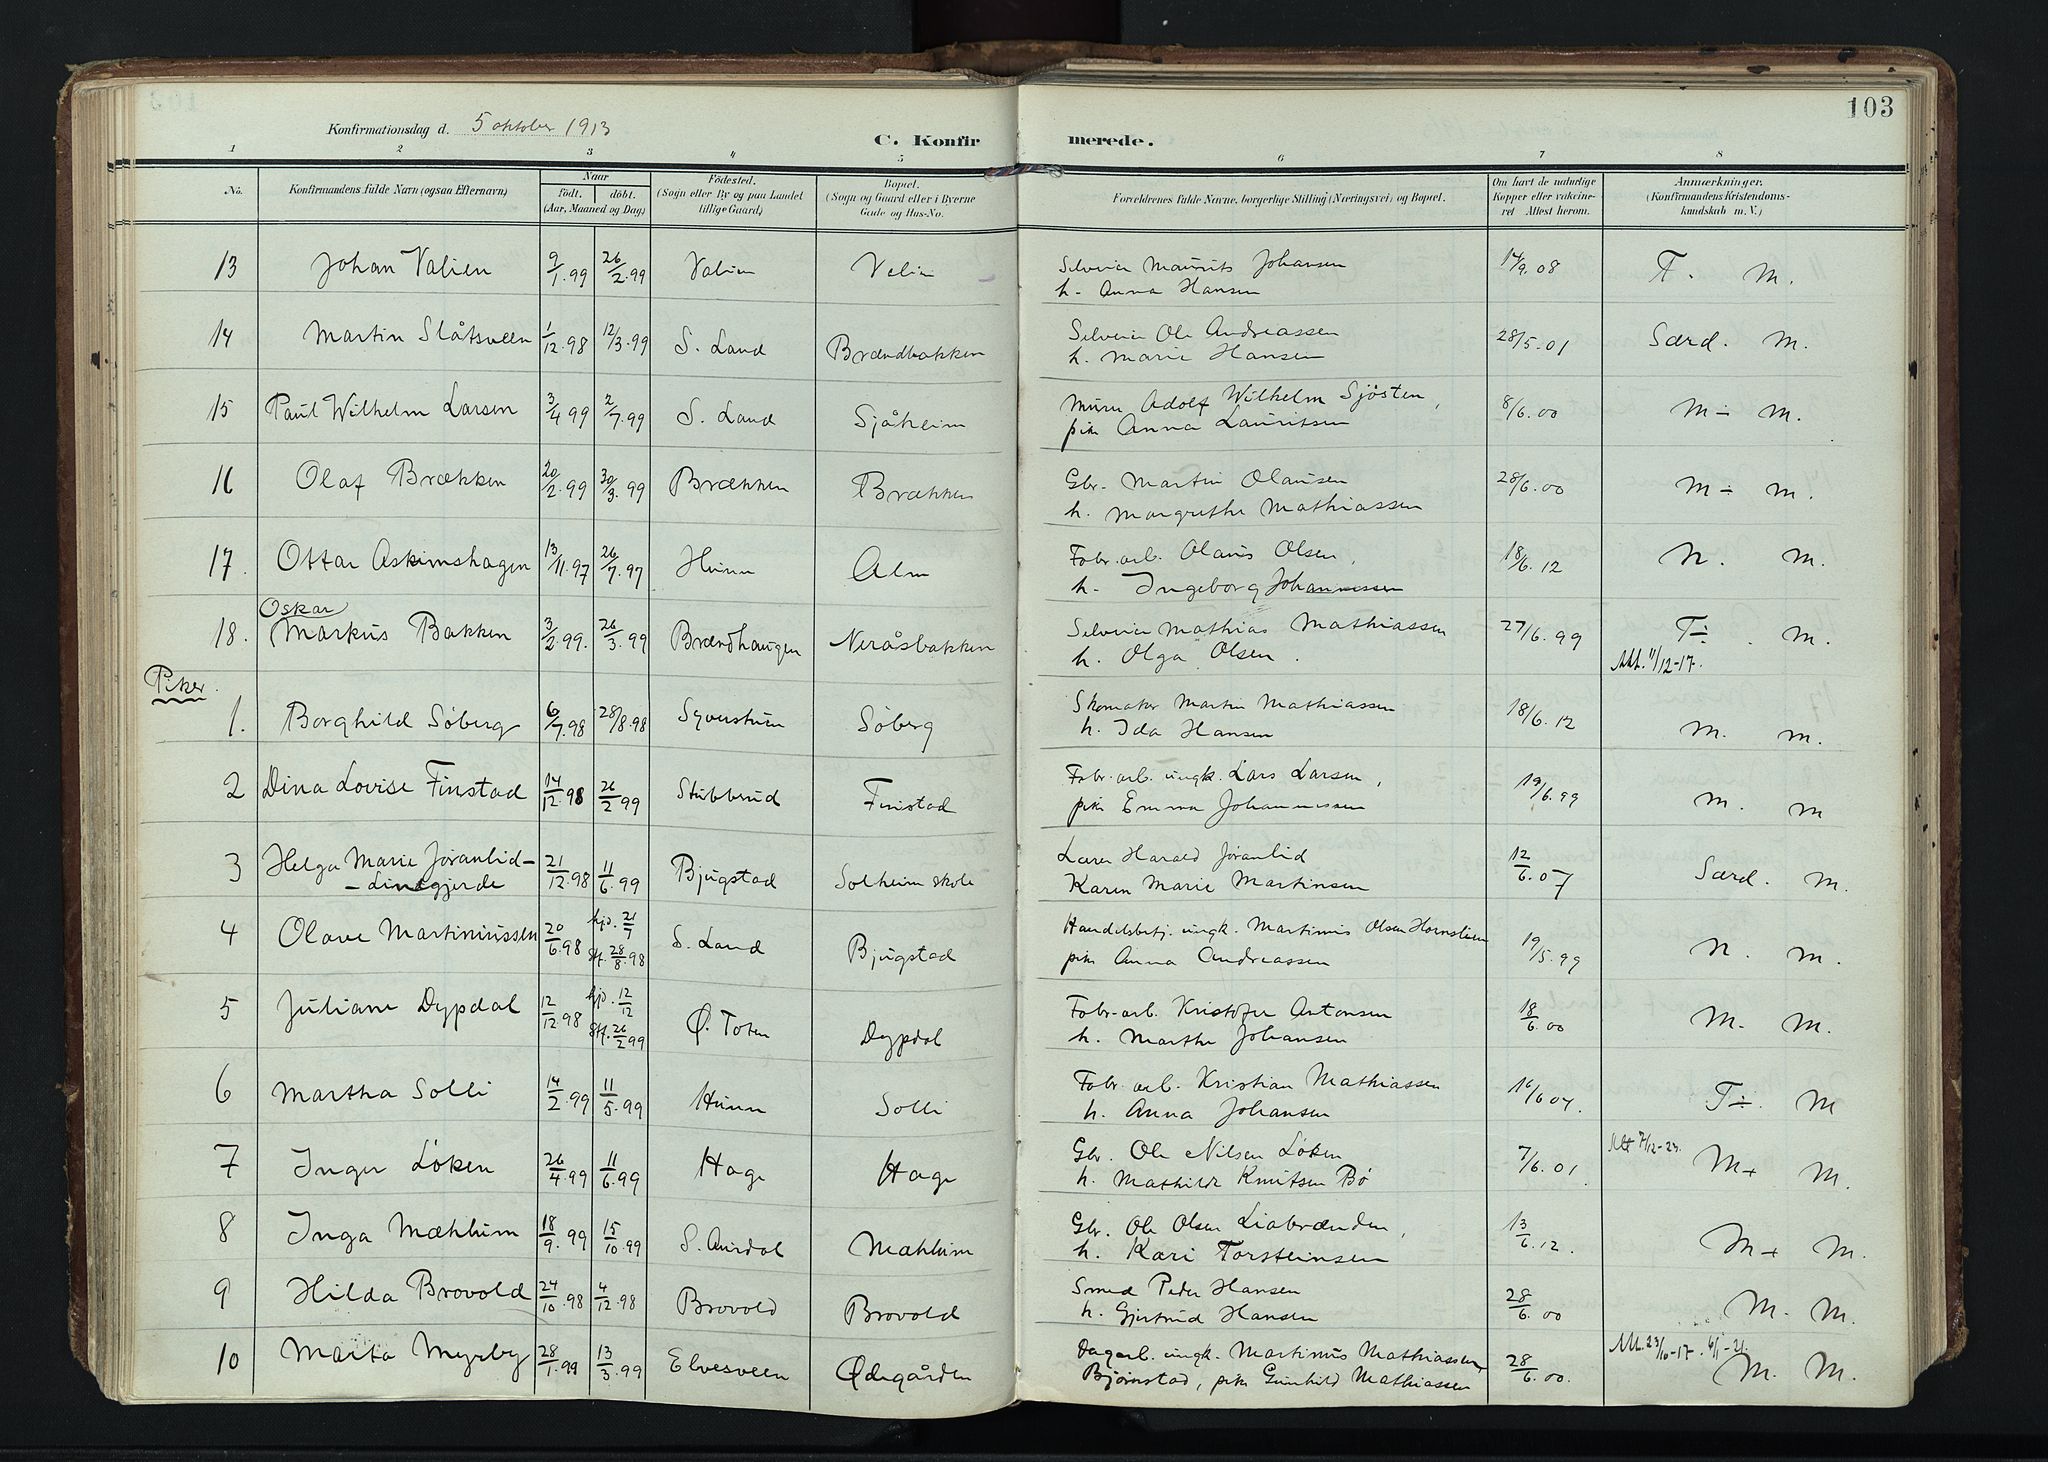 103
Konfirmationsdag d. 5 oktober 1913
C. Konfirmerede.
1 2 3 4 5 6 7 8
No. Konfirmandens fulde Navn (ogsaa Efternavn) Naar født. døbt. (Aar, Maaned og Dag) Fødested. (Sogn eller By og paa Landet tillige Gaard) Bopæl. (Sogn og Gaard eller i Byerne Gade og Hus-No. Forældrenes fulde Navne, borgerlige Stilling (Næringsvei) og Bopæl. Om havt de naturlige Kopper eller vaccineret Attest herom. Anmærkninger. (Konfirmandens Kristendomskundskab m. V.)
13 Johan Valien 9/1.99 26/2.99 Valien Velien Selveier Maurits Johansen 14/9.08 T. M.
h. Anna Hansen
14 Martin Slåtsveen 1/12.98 12/3.99 S. Land Brændbakken Selveier Ole Andreassen 28/5.01 Særd. M.
h. Marie Hansen
15 Paul Wilhelm Larsen 3/4 99 2/7.99 S. Land Sjåheim Murer Adolf Wilhelm Sjösten, 8/6.00 M÷ M.
pike Anna Lauritsen
16 Olaf Brækken 20/2.99 30/3.99 Brækken Brækken Gbr. Martin Olausen 28/6.00 M÷ M.
h. Margrethe Mathiassen
17. Ottar Askimshagen 13/11.97 26/7.97 Hunn Alm Fabr.arb. Olaus Olsen, 18/6.12 N. M.
h. Ingeborg Johannessen
Oskar
18. Markus Bakken 3/2.99. 26/3.99 Brændhaugen Neråsbakken Selveier Mathias Mathiassen 27/6.99 T÷. M.
h. Olga Olsen. Att. 11/12-17.
Piker.
1. Borghild Söberg 6/7.98 28/8.98 Syverstuen Söberg Skomaker Martin Mathiassen 18/6.12 M. M.
h. Ida Hansen
2 Dina Lovise Finstad 14/12.98 26/2 99 Stubberud Finstad Fabr.arb. ungk. Lars Larsen, 19/6.99 M. M
pike Emma Johannessen
3 Helga Marie Jøranlid- 21/12.98 11/6.99 Bjugstad Solheim skole Lærer Harald Jøranlid 12/6.07 Særd. M.
-Lindgjerde Karen Marie Martinsen
4 Olave Martiniussen 20/6.98 hjd. 21/7 Stf. 28/8.98 S. Land Bjugstad Handelsbetj. ungk. Martinus Olsen Hornsleen 19/5.99 N. M.
pike Anna Andreassen
5 Juliane Dypdal 12/12 98 hjd. 12/12 Stf. 26/2 99 Ø. Toten Dypdal Fabr-arb. Kristofer Antonsen 18/6.00 M. M.
h. Marthe Johansen
6 Martha Solli 14/2.99 11/5.99 Hunn Solli Fabr.arb. Kristian Mathiassen 16/6 07. T÷. M
h. Anna Johansen
7 Inger Løken 26/4.99 11/6.99 Hage Hage Gbr. Ole Nilsen Løken 7/6.01 Att 7/12-23. M+ M.
h. Mathilde Knutsen Bø
8 Inga Mæhlum 18/9.99 15/10.99 S. Aurdal Mæhlum Gbr. Ole Olsen Liabrænden, 13/6.12. M+ M.
h. Kari Torsteinsen
9 Hilda Brovold 24/10.98 4/12.98 Brovold Brovold Smed Peder Hansen 28/6.00 M. M.
h. Gjertrud Hansen
10 Marta Myrby 28/1.99 13/3.99 Elvesveen Ødegården Dagarb. ungk. Martinus Mathiassen, 28/6.00. Att. 23/10-17. 4/1-21. M. M.
Bjørnstad, pike Gunhild Mathiassen